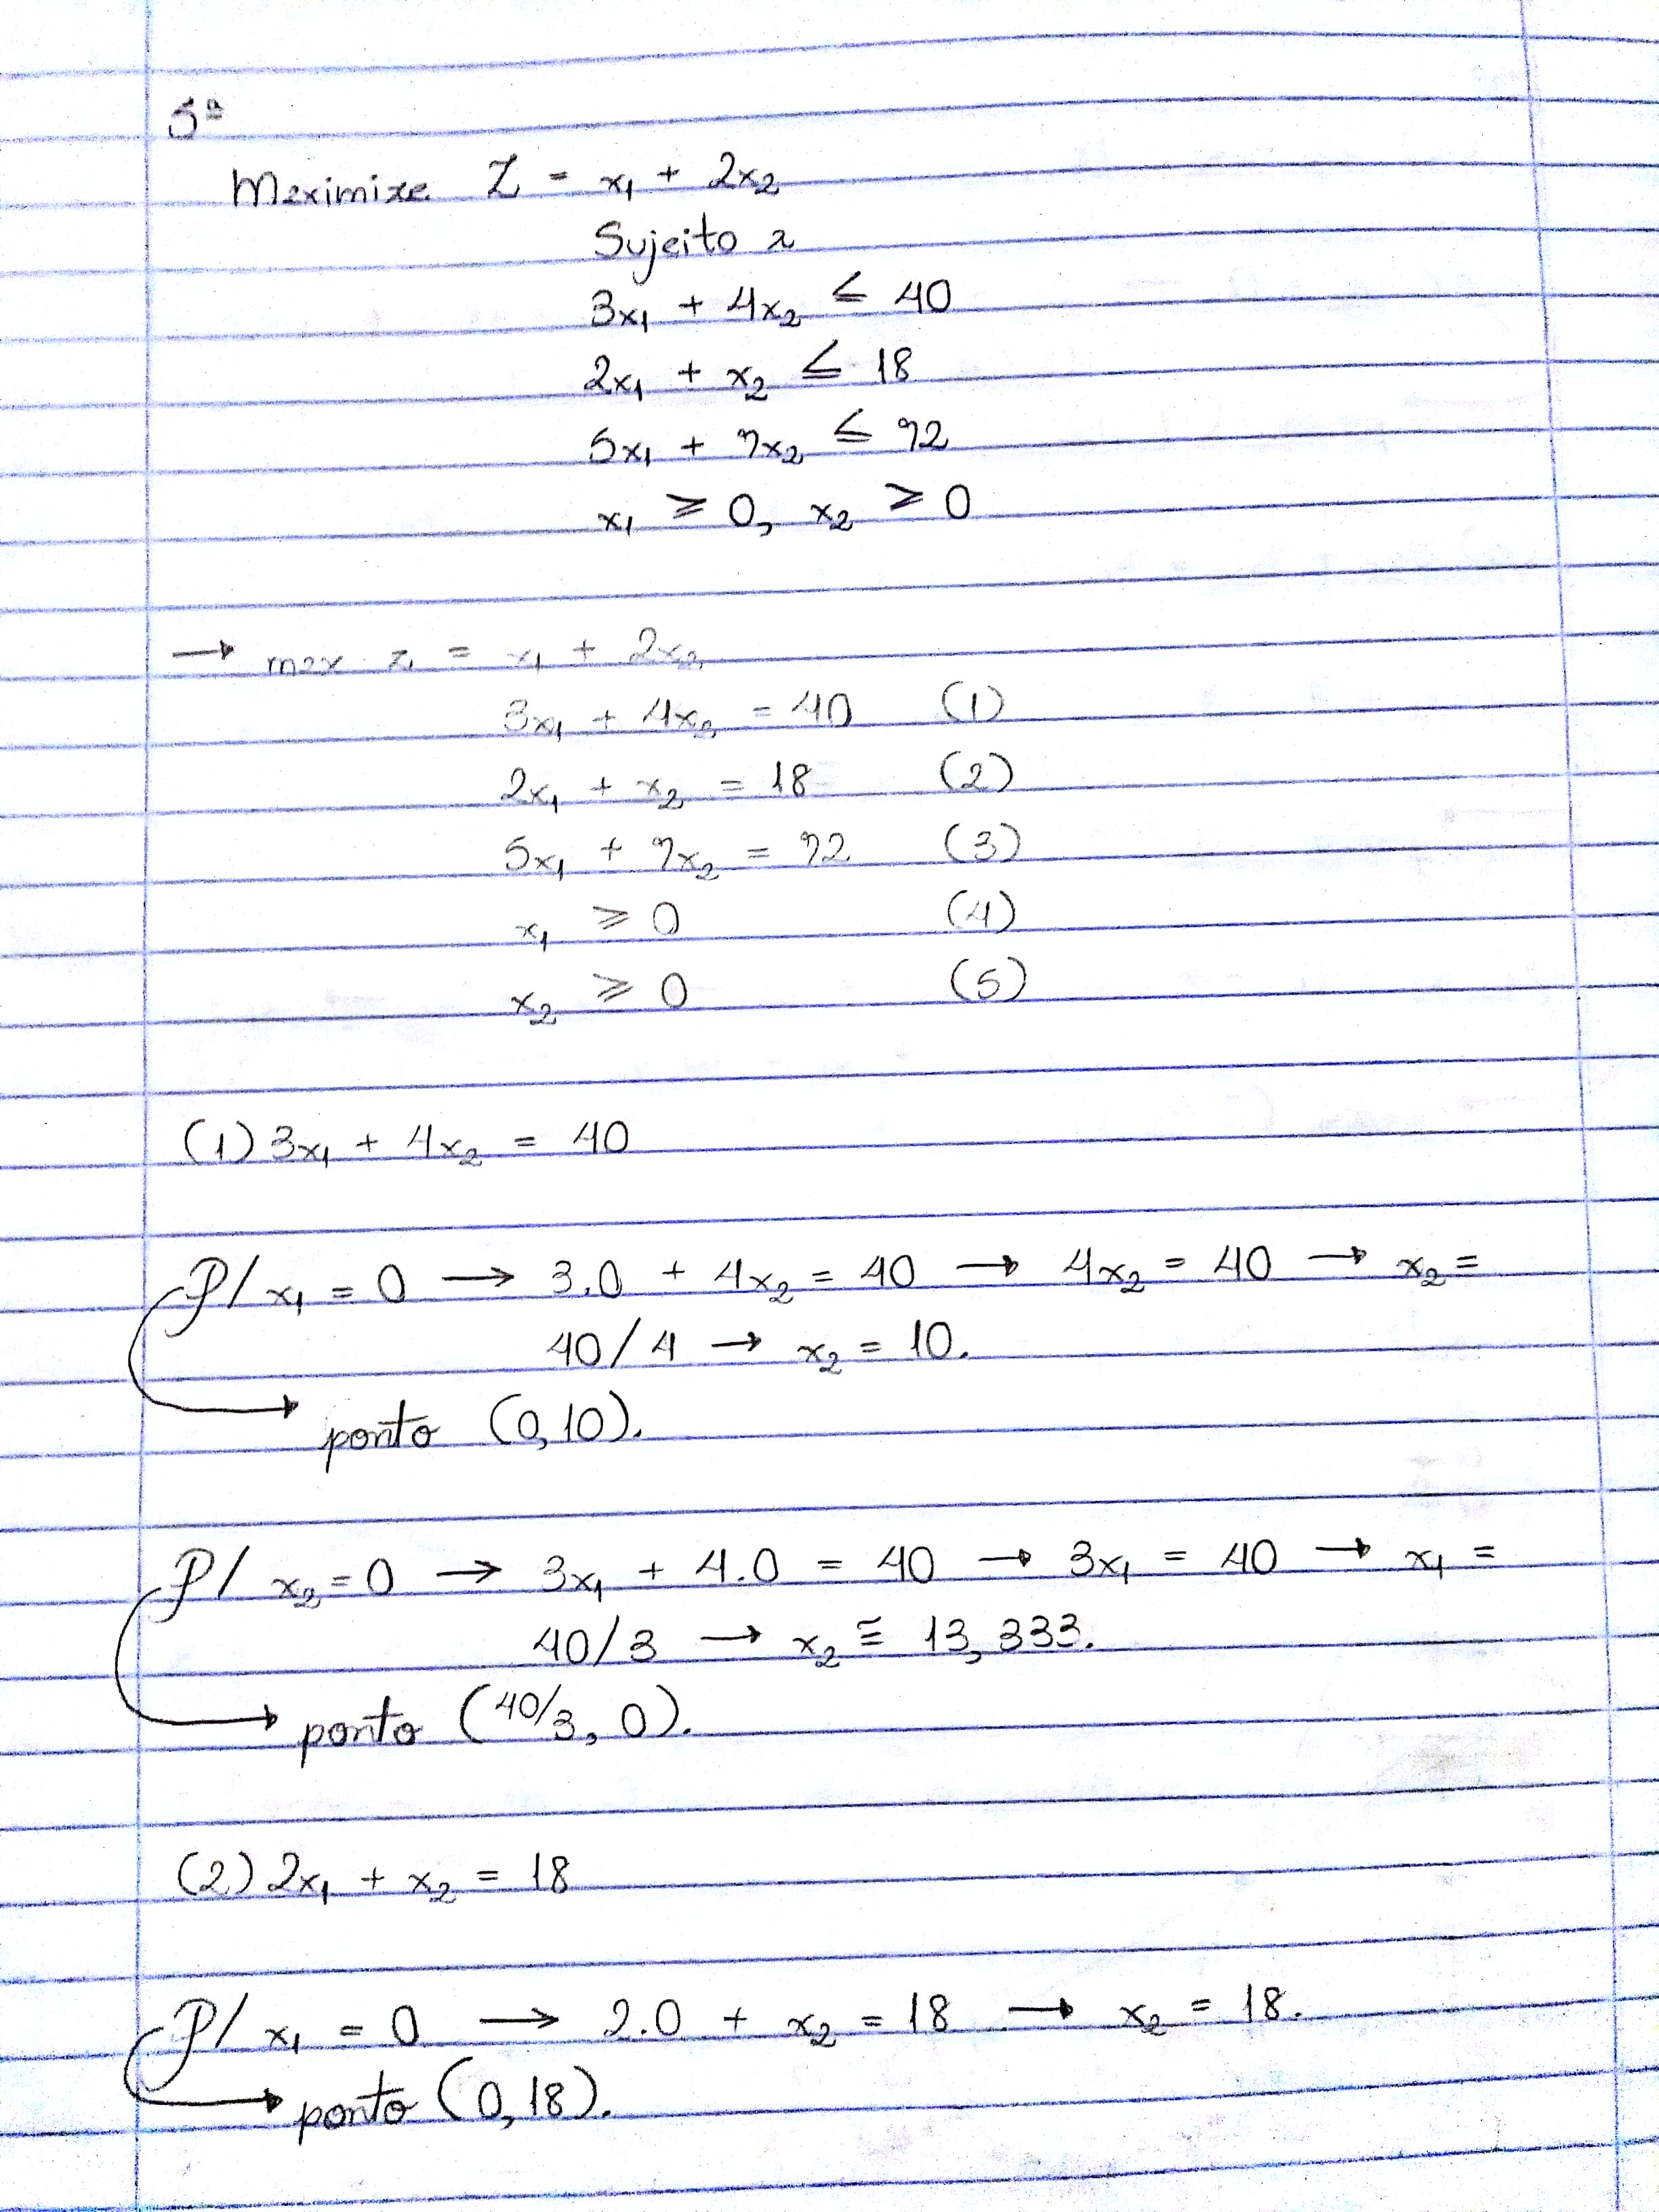 5ª
Maximize Z = x₁ + 2x₂
Sujeito a
3x₁ + 4x₂ ≤ 40
2x₁ + x₂ ≤ 18
5x₁ + 7x₂ ≤ 72
x₁ ≥ 0, x₂ ≥ 0
→ max z = x₁ + 2x₂
3x₁ + 4x₂ = 40 (1)
2x₁ + x₂ = 18 (2)
5x₁ + 7x₂ = 72 (3)
x₁ ≥ 0 (4)
x₂ ≥ 0 (5)
(1) 3x₁ + 4x₂ = 40
P/ x₁ = 0 → 3.0 + 4x₂ = 40 → 4x₂ = 40 → x₂ =
40/4 → x₂ = 10.
→ ponto (0,10).
P/ x₂ = 0 → 3x₁ + 4.0 = 40 → 3x₁ = 40 → x₁ =
40/3 → x₂ ≅ 13,333.
→ ponto (40/3, 0).
(2) 2x₁ + x₂ = 18
P/ x₁ = 0 → 2.0 + x₂ = 18 → x₂ = 18.
→ ponto (0,18).